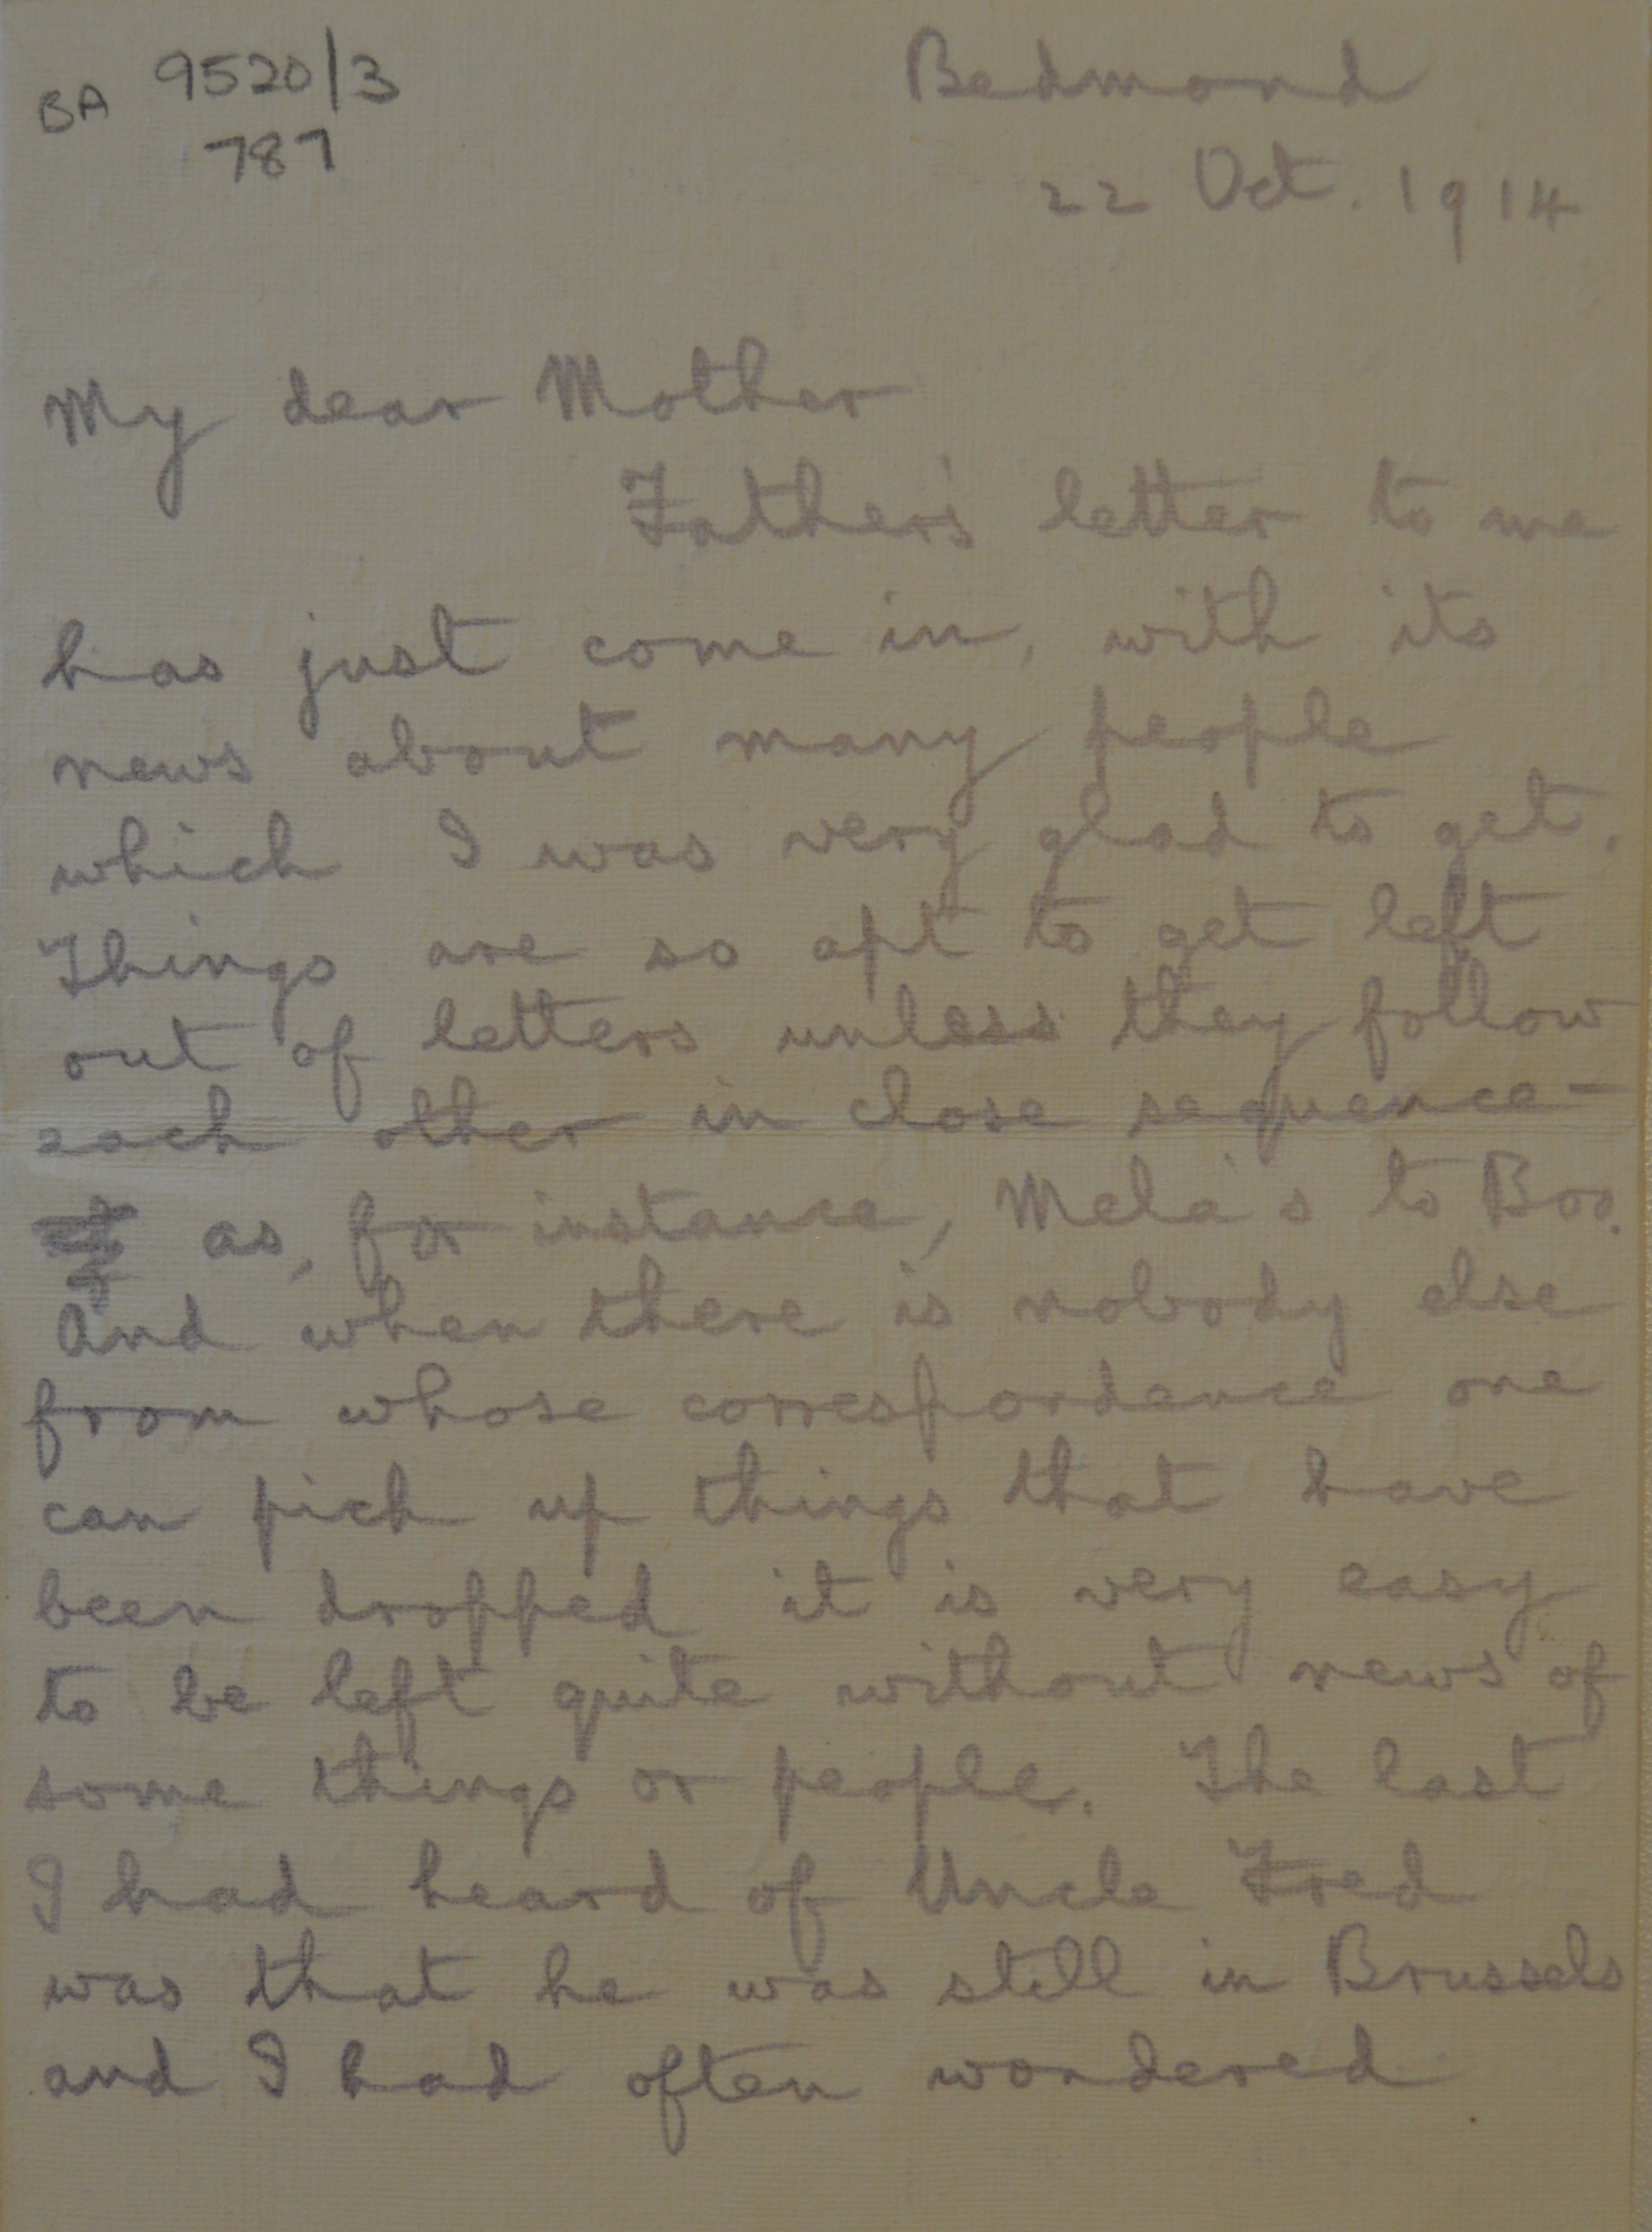 BA 9520/3
787
Bedmond
22 Oct. 1914
My dear Mother
Father's letter to me
has just come in, with its
news about many people
which I was very glad to get.
Things are so apt to get left
out of letters unless they follow
each other in close sequence –
as, for instance, Mela's to Boo.
And when there is nobody else
from whose correspondence one
can pick up things that have
been dropped it is very easy
to be left quite without news of
some things or people. The last
I had heard of Uncle Fred
was that he was still in Brussels
and I had often wondered